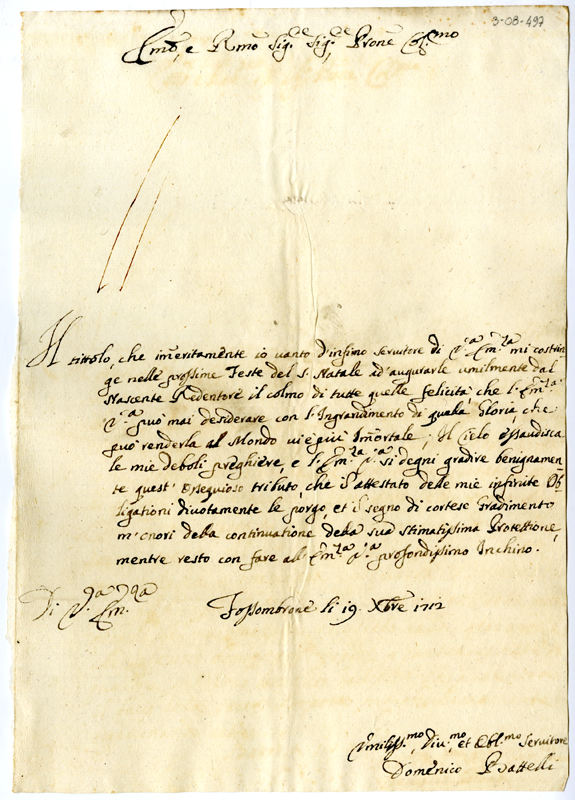 3-08-497
Em̃o, e Rmõ Sig.re Sig.re Prone Col.mo
Il tittolo, che im̃eritamente io vanto d'infimo servitore di V.ra Em.za mi costrin-
ge nelle prossime Feste del S. Natale ad'augurarle umilmente dal
Nascente Redentore il colmo di tutte quelle felicità, che l'Em.za
V.ra può mai desiderare con l'Ingrandimento di quella Gloria che
può renderla al Mondo vie più Im̃ortale; Il Cielo essaudisca
le mie deboli preghiere, e l'Em.za V.ra si degni gradire benignamen-
te quest' Ossequioso tributo, che P attestato delle mie infinite Ob-
ligationi divotamente le porgo, et P segno di cortese Gradimento
m'onori della continuatione della sua stimatissima Protettione,
mentre resto con fare all'Em.za V.ra profondissimo Inchino.
Di V.ra Em.za
Fossombrone li 19. Xbre 1712
Umiliss.mo, Div.mo, et Obl.mo Servitore
Domenico Battelli